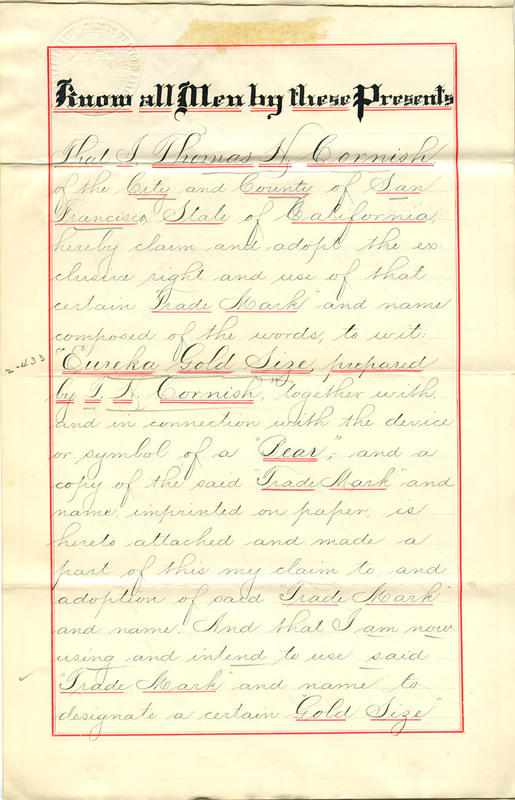 Know all Men by these Presents
That I Thomas H. Cornish
of the City and County of San
Francisco, State of California,
hereby claim and adopt the ex-
clusive right and use of that
certain "Trade Mark" and name
composed of the words, to wit:
2-433
"Eureka Gold Size, prepared
by T. H. Cornish," together with,
and in connection with the device
or symbol of a "Pear", and a
copy of the said "Trade Mark" and
name, imprinted on paper, is
hereto attached and made a
part of this my claim to, and
adoption of said "Trade Mark"
and name. And that I am now
using and intend to use said
"Trade Mark" and name to
designate a certain "Gold Size"